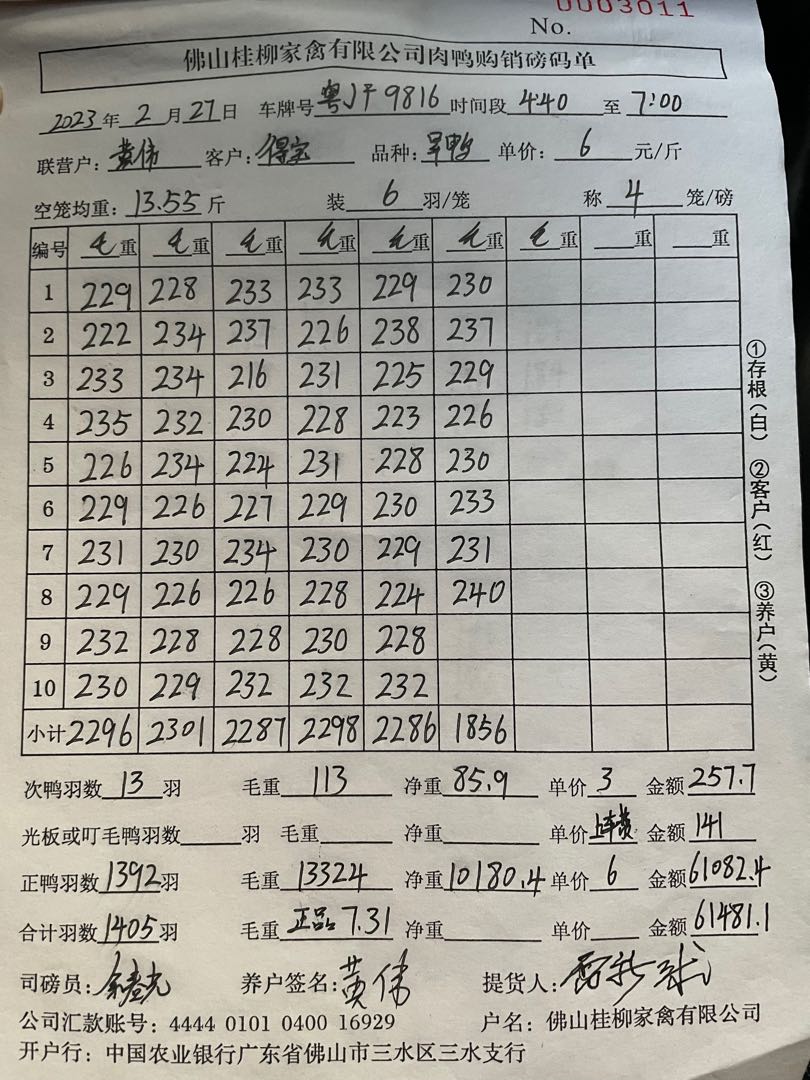 0003011
No.
佛山桂柳家禽有限公司肉鸭购销磅码单
2023年2月27日 车牌号粤JF9816时间段4:40至7:00
联营户:黄伟 客户:得宝 品种:旱鸭 单价:6元/斤
空笼均重:13.55斤 装6羽/笼 称4笼/磅
编号 毛重 毛重 毛重 毛重 毛重 毛重 毛重 重 重
1 229 228 233 233 229 230
2 222 234 237 226 238 237
3 233 234 216 231 225 229
4 235 232 230 228 223 226
5 226 234 224 231 228 230
6 229 226 227 229 230 233
7 231 230 234 230 229 231
8 229 226 226 228 224 240
9 232 228 228 230 228
10 230 229 232 232 232
小计 2296 2301 2287 2298 2286 1856
①存根(白) ②客户(红) ③养户(黄)
次鸭羽数13羽 毛重113 净重85.9 单价3 金额257.7
光板或叮毛鸭羽数 羽 毛重 净重 单价上车费 金额141
正鸭羽数1392羽 毛重13324 净重10180.4 单价6 金额61082.4
合计羽数1405羽 毛重正品7.31 净重 单价 金额61481.1
司磅员: 养户签名:黄伟 提货人:
公司汇款账号:4444 0101 0400 16929 户名:佛山桂柳家禽有限公司
开户行:中国农业银行广东省佛山市三水区三水支行